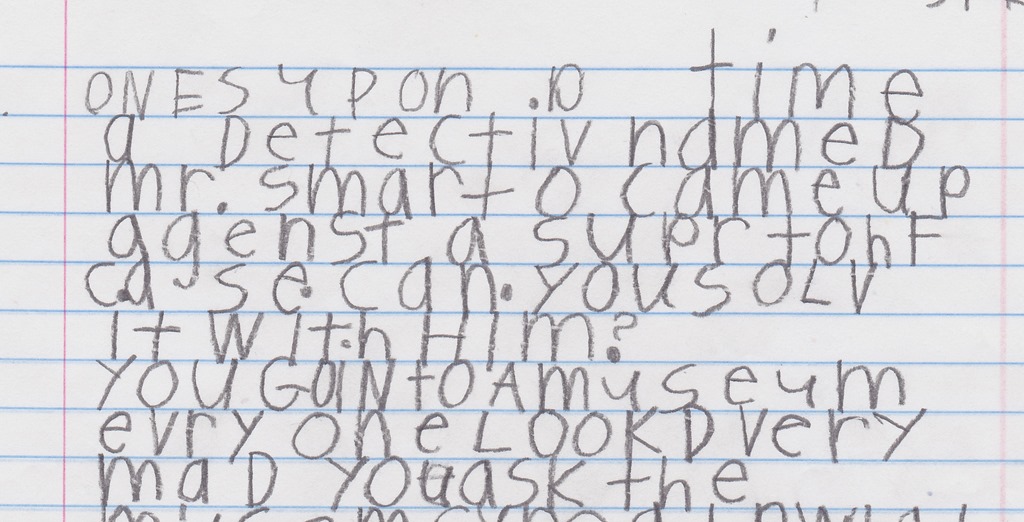 ONES UPON .D time
a Detectiv nameD
mr. smart O came up
agenst a supertoht
ca se. can. you soLV
it With Him?
YOU GaiN tO A museum
evry one LOOKD very
maD YOU ask the